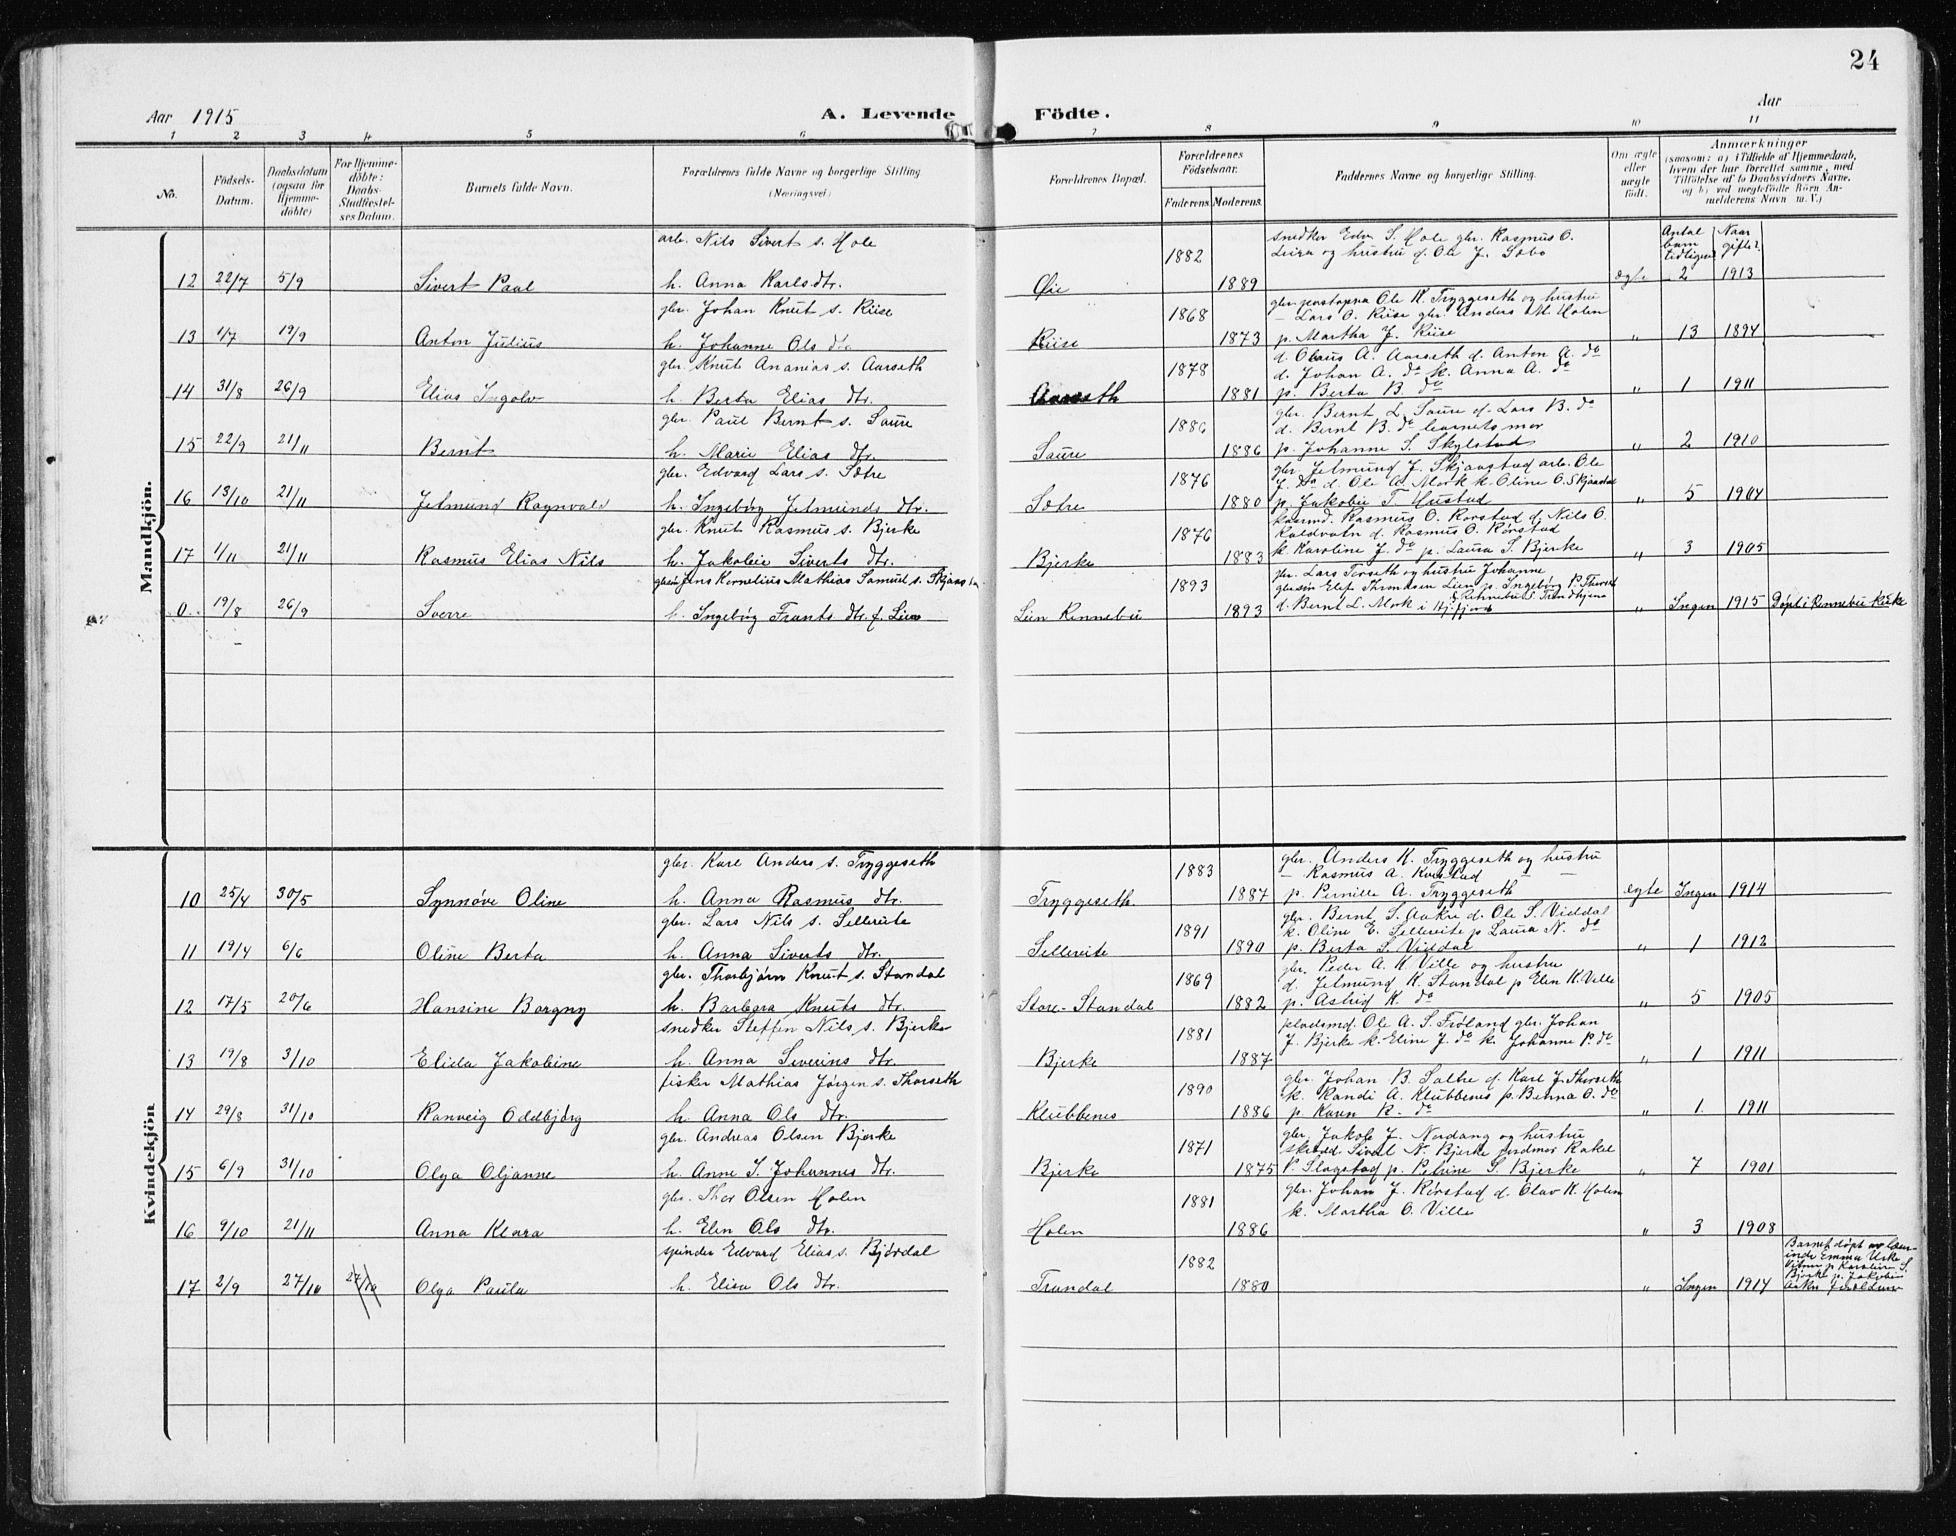 24
Aar 1915
A. Levende Födte.
Aar
1 2 3 4 5 6 7 8 9 10 11
No.
Födsels-Datum.
Daabsdatum (ogsaa for Hjemme-döbte)
For Hjemme-döbte: Daabs-Stadfæstel-ses Datum.
Barnets fulde Navn.
Forældrenes fulde Navne og borgerlige Stilling (Næringsvei.)
Forældrenes Bopæl.
Forældrenes Födselsaar.
Faderens. Moderens.
Faddernes Navne og borgerlige Stilling.
Om ægte eller uægte födt.
Anmærkninger
(saasom: a) i Tilfælde af Hjemmedaab, hvem der har forrettet samme, med Tilföielse af to Daabsvidners Navne, og b) ved uægtefödte Börn An-melderens Navn m. V.)
Antal barn tidligere Naar gifte?
Mandkjön.
arb. Nils Sivert s. Hole 1882 snedker Edv. S. Hole gbr. Rasmus O.
Leira og hustru d. Ole J. Sæbø
12 22/7 5/9 Sivert Paul h. Anna Karls dtr. Øie 1889 ægte 2 1913
gbr. Johan Knut s. Riise 1868 Ole K. Tryggeseth og hustru
– Lars O. Riise gbr. Anders M. Holen
13 1/7 19/9 Anton Julius h. Johanne Ols dtr. Riise 1873 p. Martha J. Riise " 13 1894
gbr. Knut Ananias s. Aarseth 1878 d. Olaus A. Aarseth d. Anton A. do
d. Johan A. do k. Anna A. do
14 31/8 26/9 Elias Ingolv h. Berta Elias dtr. Aarseth 1881 p. Berta B. do " 1 1911
gbr. Paul Bernt s. Saure 1886 gbr. Bernt L. Saure d. Lars B. do
d. Bernt B. do barnets mor
15 22/9 21/11 Bernt h. Marie Elias dtr. Saure 1886 p. Johanne S. Skylstad " 2 1910
gbr. Edvard Lars s. Sætre 1876 gbr. Jetmund J. Skjaastad arb. Ole
J. do d. Ole A. Mork k. Oline O. Skjaastad
16 13/10 21/11 Jetmund Ragnvald h. Ingebørg Jetmunds dtr. Sætre 1880 p. Jakobie T. Hustad " 5 1904
gbr. Knut Rasmus s. Bjerke 1876 Rasmus O. Rørstad d. Nils O.
Kaldvatn d. Rasmus O. Rørstad
17 1/11 21/11 Rasmus Elias Nils h. Jakobie Siverts dtr. Bjerke 1883 k. Karoline J. do p. Laura S. Bjerke " 3 1905
Jens Kornelius Mathias Samuel s. 1893 gbr. Lars Torseth og hustru Johanne
Lien p. Ingebørg P. Thorseth
0. 19/8 26/9 Sverre h. Ingebørg Frants dtr. f. Lien Lien Rennebu 1893 d. Bernt L. Mork i Hj.fjord " Ingen 1915 Døpt i Rennebu kirke
Kvindekjön
gbr. Karl Anders s. Tryggeseth 1883 gbr. Anders K. Tryggeseth og hustru
– Rasmus A. Kvistad – –
10 25/4 30/5 Synnøve Oline h. Anna Rasmus dtr. Tryggeseth. 1887 p. Pernille A. Tryggeseth egte Ingen 1914
gbr. Lars Nils s. Sellereite 1891 gbr. Bernt S. Aakre d. Ole S. Viddal
k. Oline E. Sellereite p Laura N. do
11 19/4 6/6 Oline Berta h. Anna Siverts dtr. Sellereite 1890 p. Berta S. Viddal " 1 1912
gbr. Thorbjørn Knut s. Standal 1869 gbr. Peder A. K Ville og hustru
d. Jetmund K. Standal p Elen K. Ville
12 17/5 20/6 Hansine Borgny h. Barbara Knuts dtr. Store-Standal 1882 p. Astrid K. do " 5 1905
snedker Steffen Nils s. Bjerke 1881 pladsmd. Ole A. S. Frøland gbr. Johan
J. Bjerke k. Eline J. do k. Johanne P. do
13 19/8 3/10 Elida Jakobine h. Anna Severins dtr. Bjerke 1887 " 1 1911
fisker Mathias Jørgen s. Thorseth 1890 gbr. Johan B. Sætre d. Karl J. Thorseth
k. Randi A. Klubbenes p. Benna O. do
14 29/8 31/10 Ranveig Oddbjørg h. Anna Ols dtr. Klubbenes 1886 p. Karn K. do " 1. 1911
gbr. Andreas Olsen Bjerke 1871 gbr. Jakob J. Nordang og hustru
Sivert N. Bjerke jordmor Rakel
15 6/9 31/10 Olga Oljanne h. Anne S. Johannes dtr. Bjerke 1875 P. Slagstad p. Petrine S. Bjerke " 7 1901
gbr. Thor Olsen Holen 1881 gbr. Johan J. Rørstad d. Olav K. Holen
k. Martha O. Ville
16 9/10 21/11 Anna Klara h. Elen Ols dtr. Holen 1886 " 3 1908
spinder Edvard Elias s. Bjørdal 1882
17 2/9 27/10 27/10 Olga Paula h. Elisa Ols dtr. Trandal 1880 " Ingen 1914 Barnet døpt av lærerinde Emma Urke